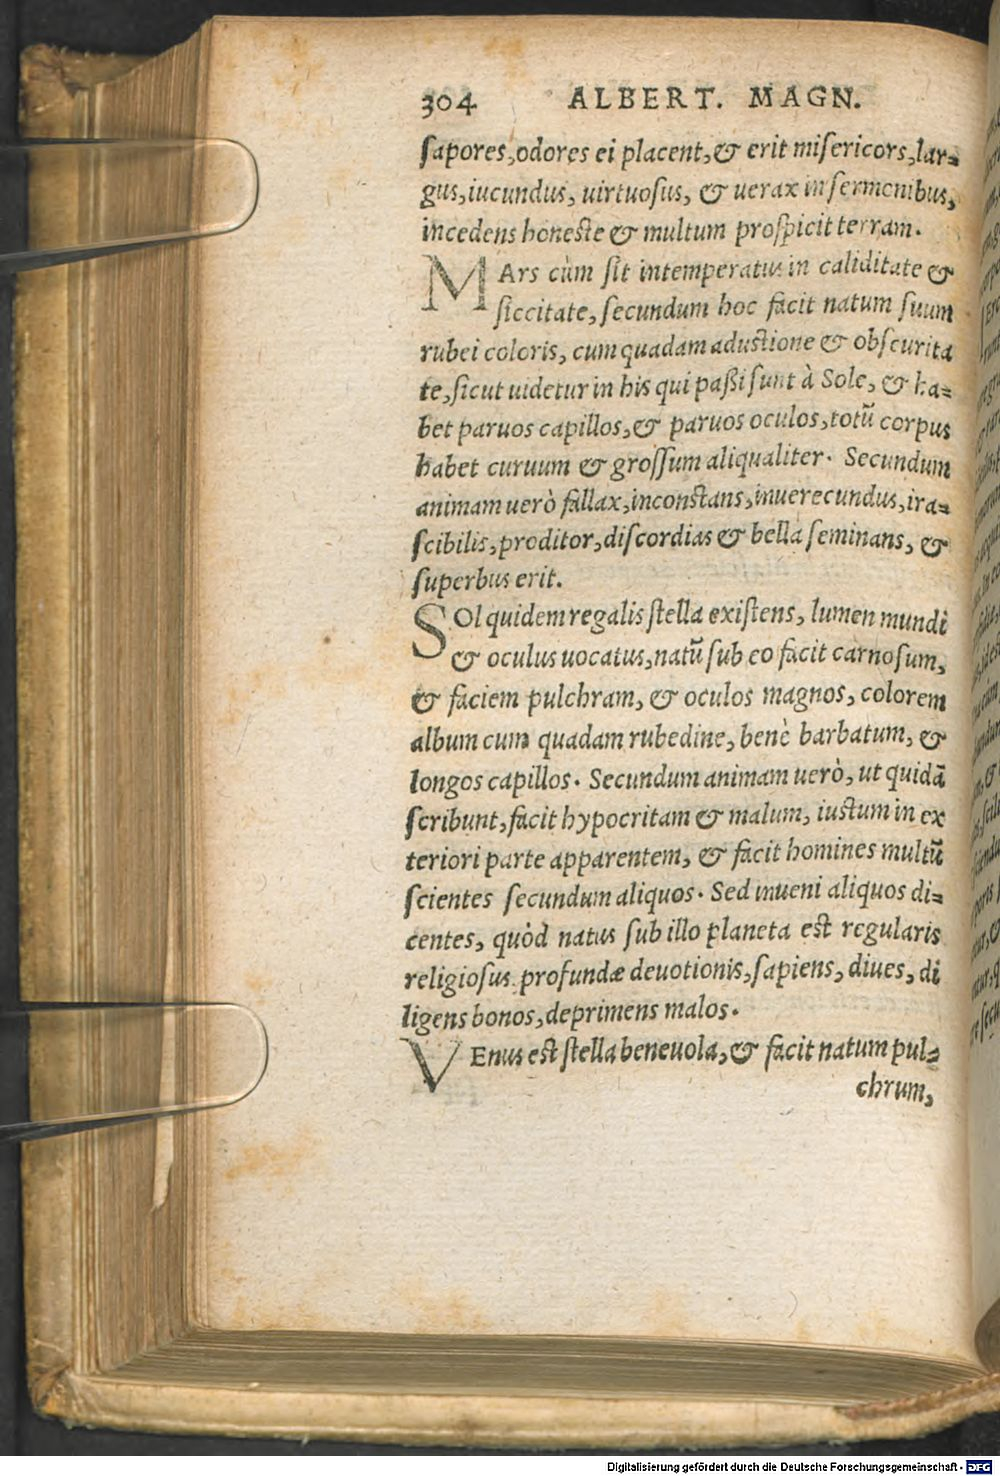 304 ALBERT. MAGN.
ſapores,odores ei placent,& erit miſericors,lar=
gus,iucundus, uirtuoſus, & uerax in ſermonibus,
incedens honeſte & multum proſpicit terram.
MArs cùm ſit intemperatus in caliditate &
ſiccitate, ſecundum hoc facit natum ſuum
rubei coloris, cum quadam aduſtione & obſcurita
te,ſicut uidetur in his qui paßi ſunt à Sole, & ha=
bet paruos capillos,& paruos oculos,totũ corpus
habet curuum & groſſum aliqualiter. Secundum
animam uerò fallax,inconſtans,inuerecundus,ira=
ſcibilis,proditor,diſcordias & bella ſeminans, &
ſuperbus erit.
SOl quidem regalis ſtella exiſtens, lumen mundi
& oculus uocatus,natũ ſub eo facit carnoſum,
& faciem pulchram, & oculos magnos, colorem
album cum quadam rubedine, benè barbatum, &
longos capillos. Secundum animam uerò, ut quidã
ſcribunt,facit hypocritam & malum, iuſtum in ex
teriori parte apparentem, & facit homines multũ
ſcientes ſecundum aliquos. Sed inueni aliquos di=
centes, quòd natus ſub illo planeta eſt regularis
religioſus, profundæ deuotionis,ſapiens, diues, di
ligens bonos,deprimens malos.
VEnus eſt ſtella beneuola,& facit natum pul=
chrum,
Digitalisierung gefördert durch die Deutsche Forschungsgemeinschaft - DFG